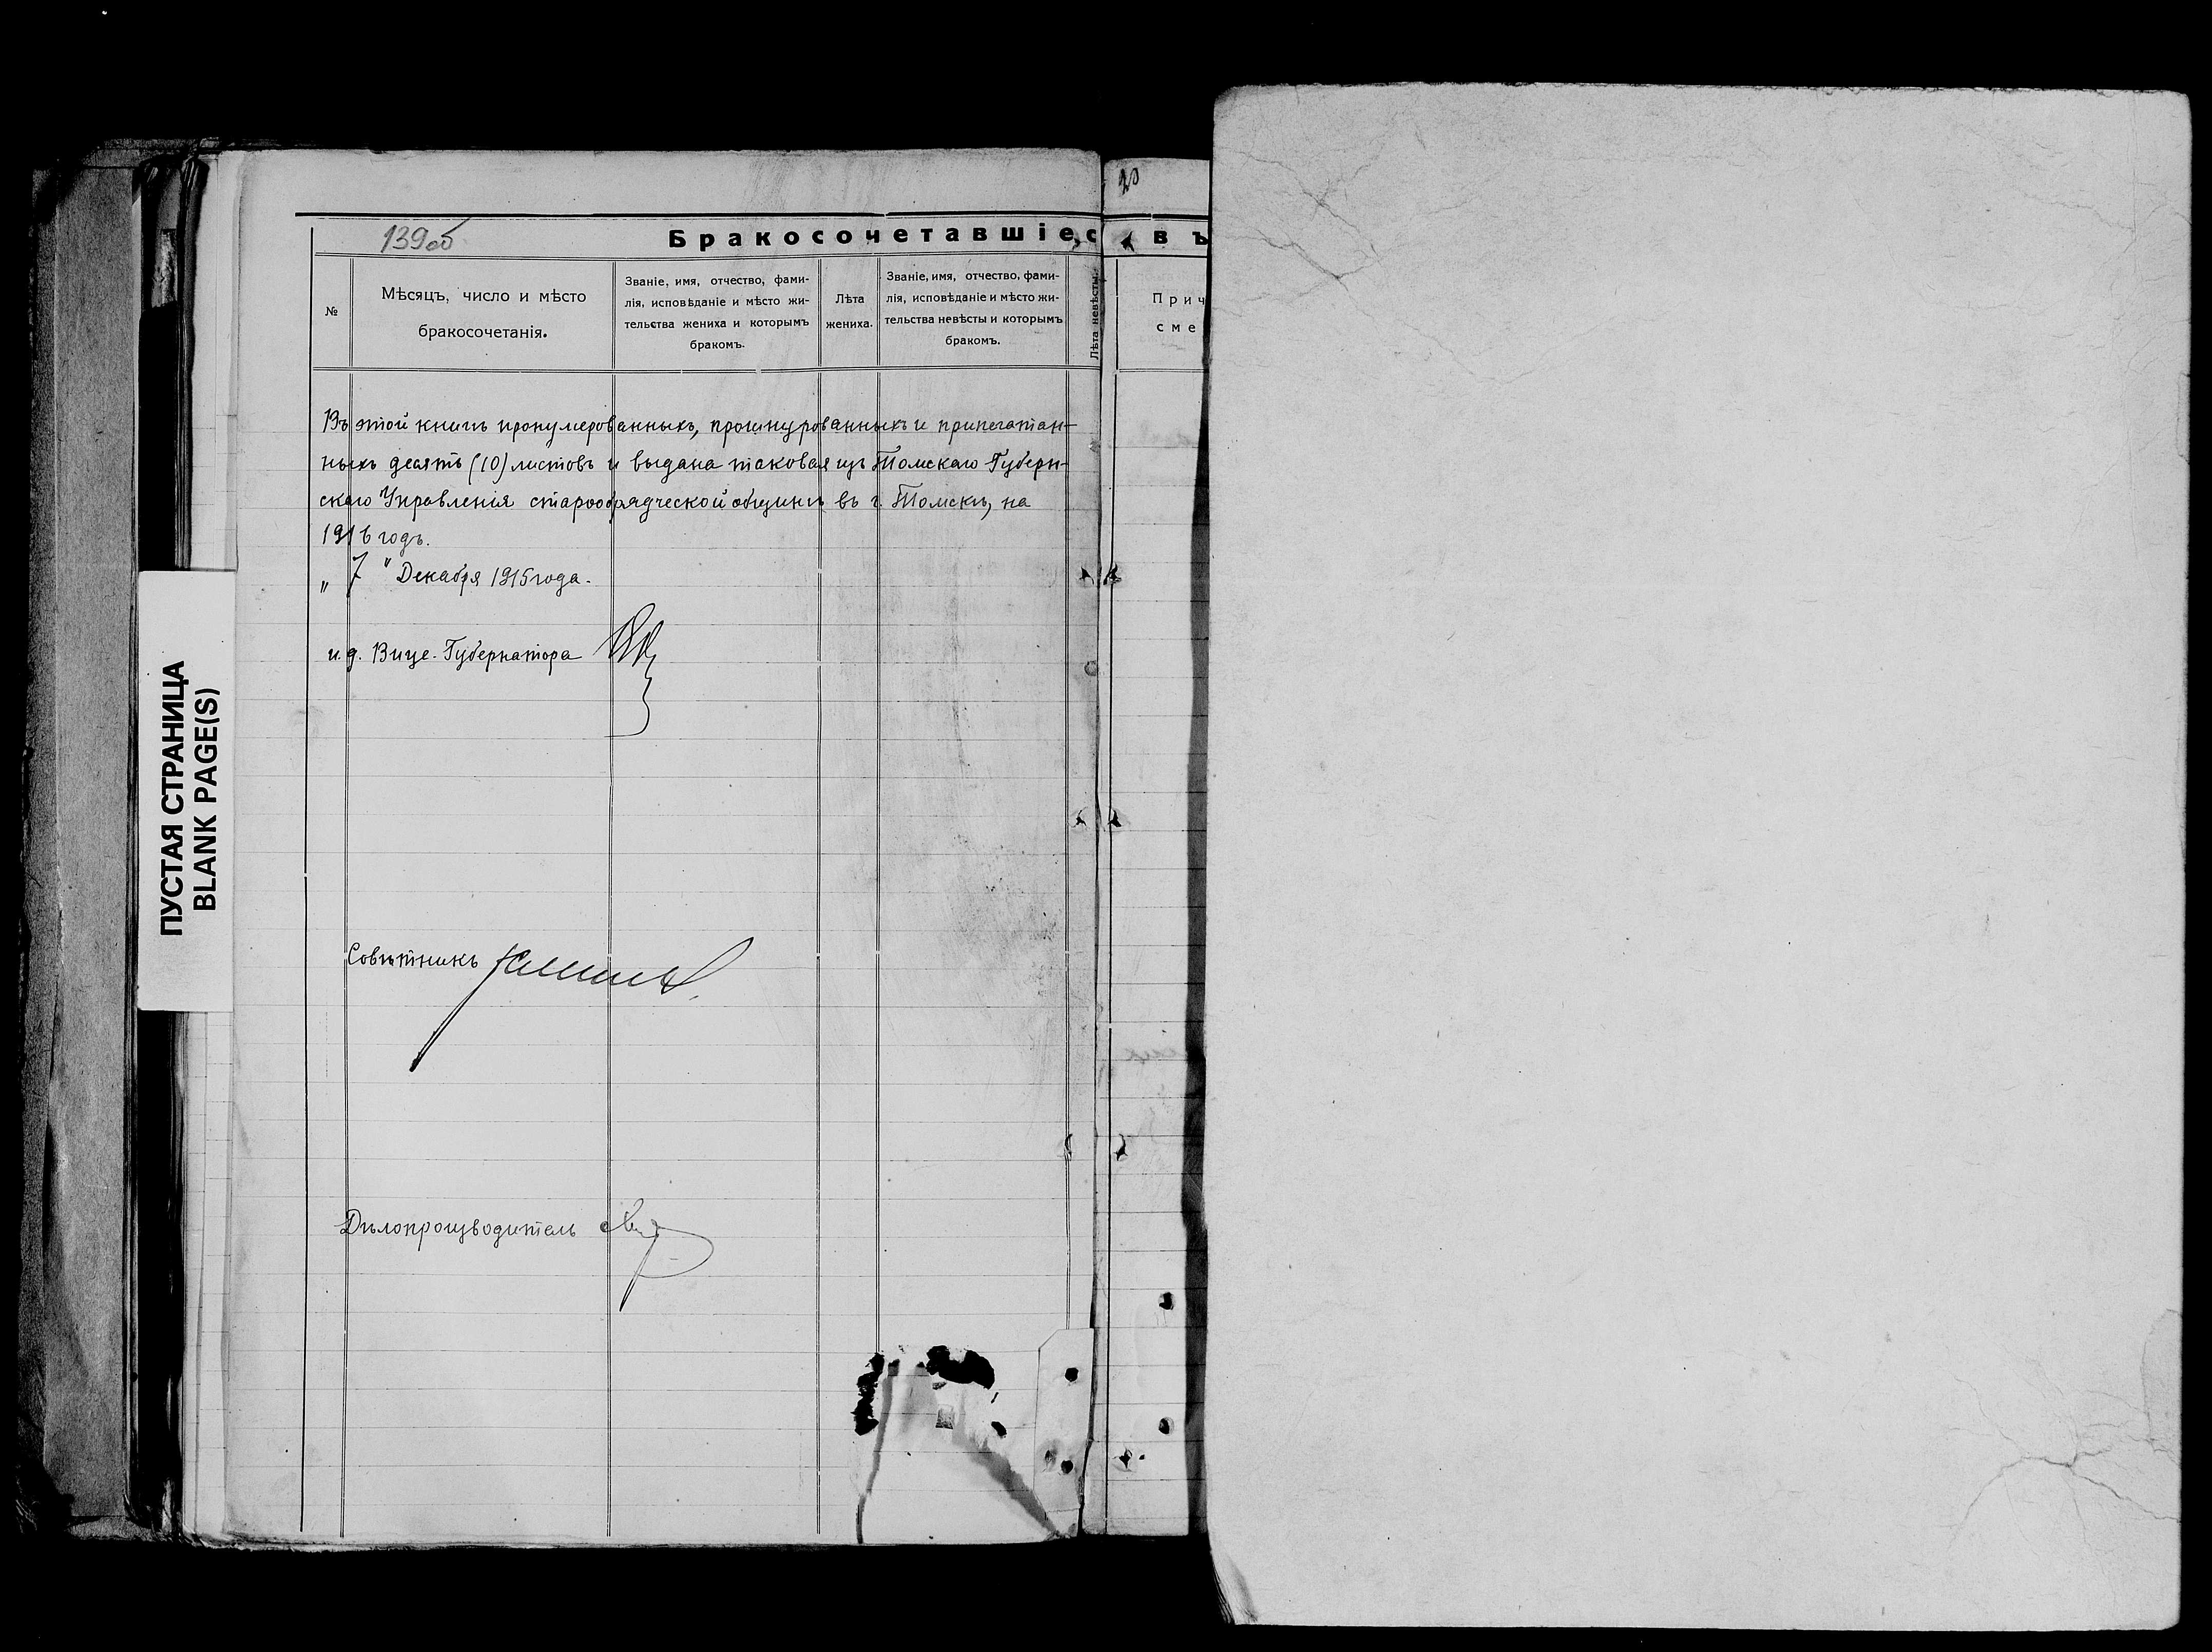 139об
Бракосочетавшіес въ
№
Мѣсяцъ, число и мѣсто
бракосочетанія.
Званіе, имя, отчество, фами-
лія, исповѣданіе и мѣсто жи-
тельства жениха и которымъ
бракомъ.
Лѣта
жениха.
Званіе, имя, отчество, фами-
лія, исповѣданіе и мѣсто жи-
тельства невѣсты и которымъ
бракомъ.
Лѣта невѣсты.
Прич
сме
Въ этой книгѣ пронумерованныхъ, прошнурованныхъ и припечатан-
ныхъ десять (10) листовъ и выдана таковая изъ Томскаго Губерн-
скаго Управленія старообрядческой общинѣ въ г. Томскѣ, на
1916 годъ.
„ 7 " Декабря 1915 года.
и.д. Вице-Губернатора
Совѣтникъ
Дѣлопроизводитель
ПУСТАЯ СТРАНИЦА
BLANK PAGE(S)